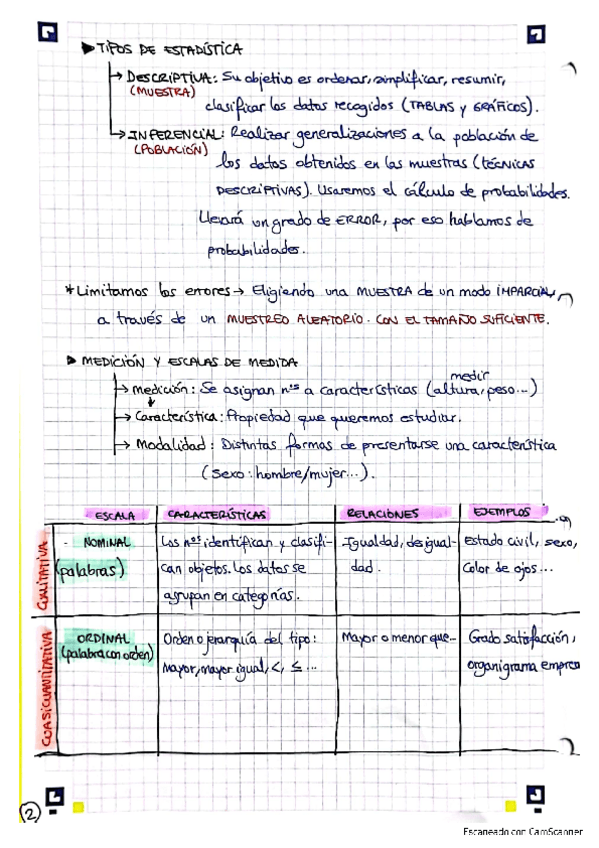 ▶TIPOS DE ESTADÍSTICA
→ DESCRIPTIVA: Su objetivo es ordenar, simplificar, resumir,
(MUESTRA)
clasificar los datos recogidos (TABLAS y GRÁFICOS).
→ INFERENCIAL: Realizar generalizaciones a la población de
(POBLACIÓN)
los datos obtenidos en las muestras (TÉCNICAS
DESCRIPTIVAS). Usaremos el cálculo de probabilidades.
Llevará un grado de ERROR, por eso hablamos de
probabilidades.
*Limitamos los errores → Eligiendo una MUESTRA de un modo IMPARCIAL,
a través de un MUESTREO ALEATORIO. CON EL TAMAÑO SUFICIENTE.
▶ MEDICIÓN Y ESCALAS DE MEDIDA
medir
→ medición: Se asignan nºs a características (altura, peso...)
→ Característica: Propiedad que queremos estudiar.
→ Modalidad: Distintas formas de presentarse una característica
(Sexo: hombre/mujer...).
ESCALA CARACTERÍSTICAS RELACIONES EJEMPLOS
CUALITATIVA
NOMINAL
(palabras)
Los nºs identifican y clasifi-
can objetos. Los datos se
agrupan en categorías.
Igualdad, desigual-
dad.
Estado civil, sexo,
color de ojos...
CUASICUANTITATIVA
ORDINAL
(palabra con orden)
Orden o jerarquía del tipo:
Mayor, mayor igual, <, ≤ ...
Mayor o menor que...
Grado satisfacción,
organigrama empresa
2
Escaneado con CamScanner